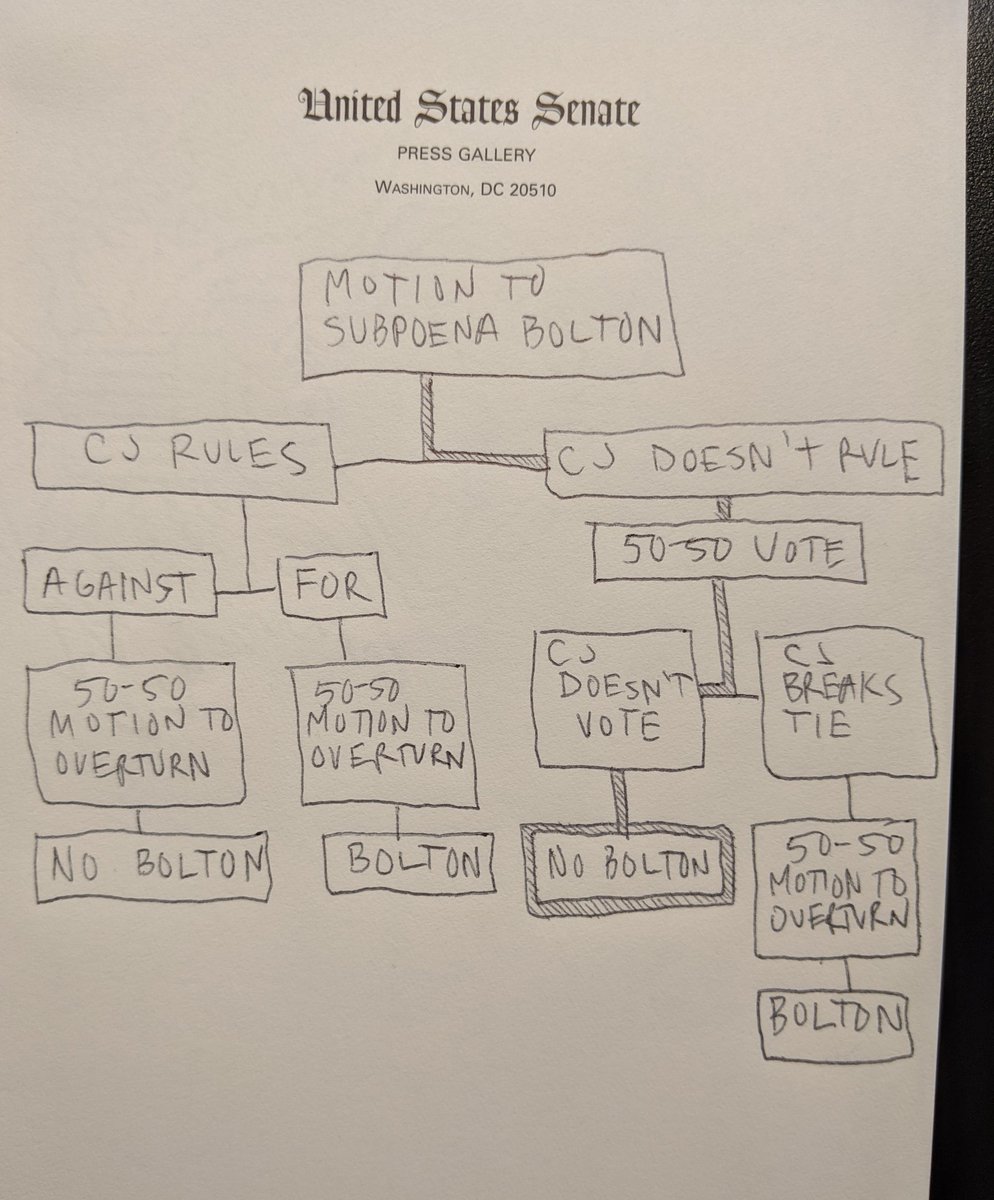 United States Senate
PRESS GALLERY
WASHINGTON, DC 20510
MOTION TO
SUBPOENA BOLTON
CJ RULES
CJ DOESN'T RULE
50-50 VOTE
AGAINST
FOR
50-50
MOTION TO
OVERTURN
50-50
MOTION TO
OVERTURN
CJ
DOESN'T
VOTE
CJ
BREAKS
TIE
NO BOLTON
BOLTON
NO BOLTON
50-50
MOTION TO
OVERTURN
BOLTON